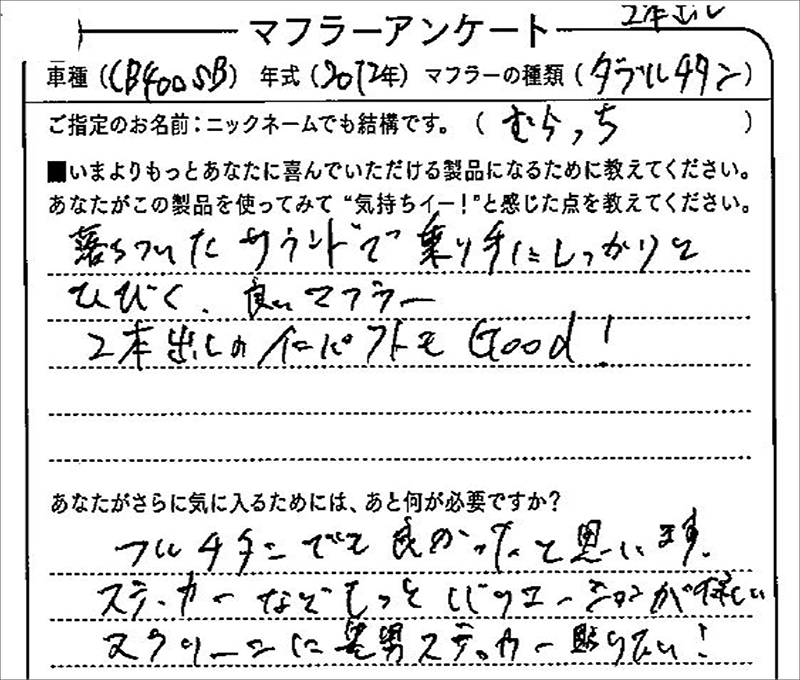 2本出し
マフラーアンケート
車種(CB400SB) 年式(2012年) マフラーの種類(ダブルチタン)
ご指定のお名前:ニックネームでも結構です。(むらっち)
■いまよりもっとあなたに喜んでいただける製品になるために教えてください。
あなたがこの製品を使ってみて“気持ちイー!”と感じた点を教えてください。
落ちついたサウンドで乗り手にしっかりと
ひびく、良いマフラー
2本出しのインパクトも Good!
あなたがさらに気に入るためには、あと何が必要ですか?
フルチタンでも良かったと思います。
ステッカーなどもっとバリエーションが欲しい
スクリーンにステッカー貼りたい!